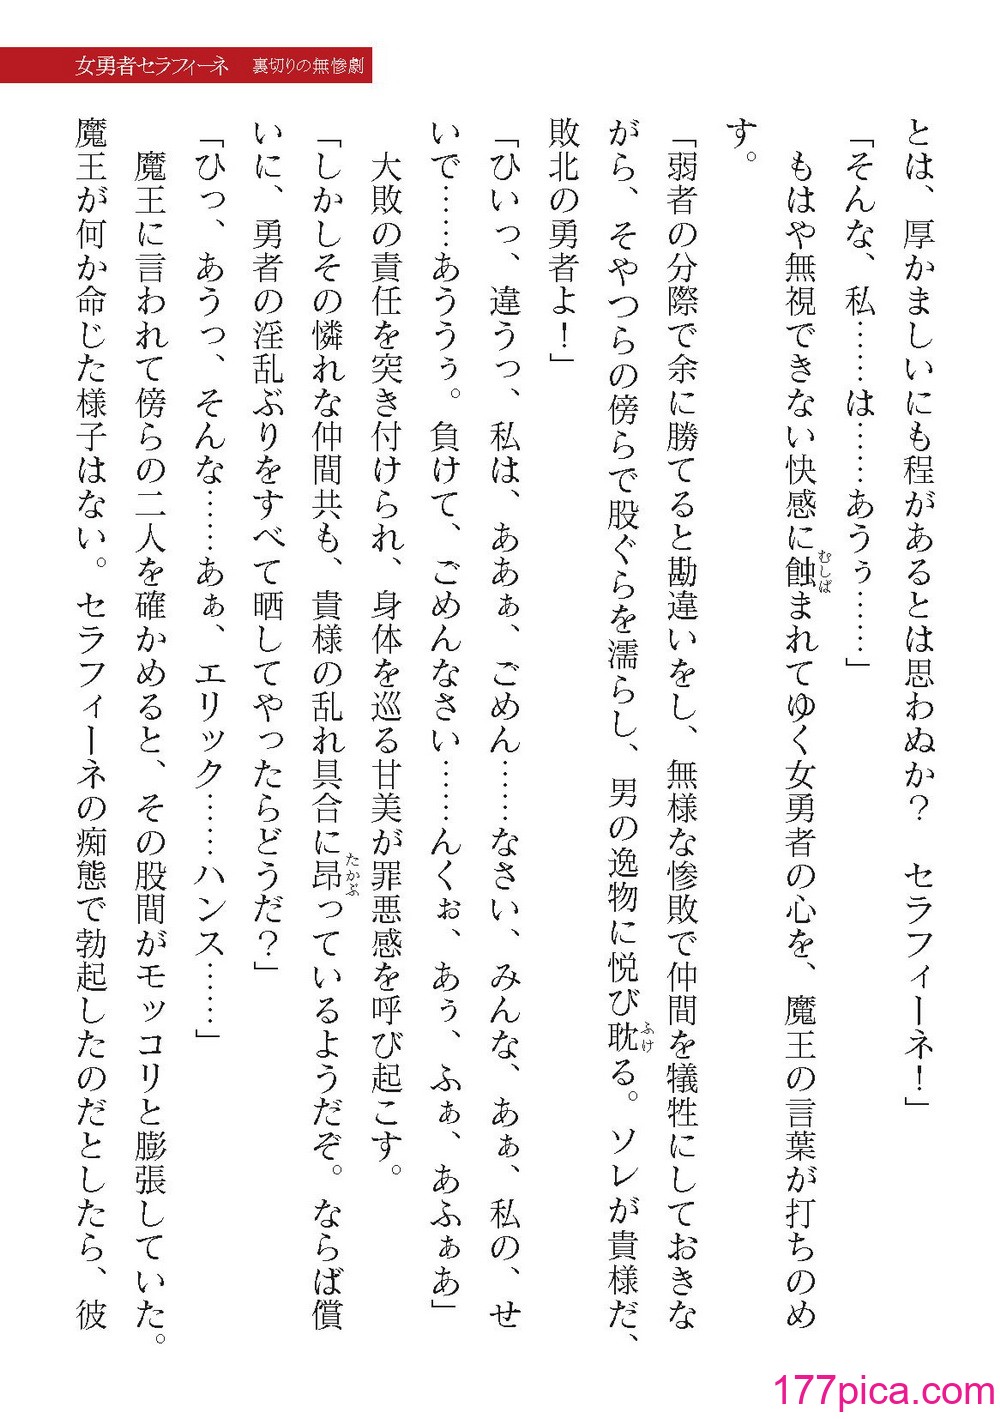 女勇者セラフィーネ 裏切りの無惨劇
とは、厚かましいにも程があるとは思わぬか？　セラフィーネ！」
「そんな、私……は……あうぅ……」
もはや無視できない快感に蝕まれてゆく女勇者の心を、魔王の言葉が打ちのめ
むしば
す。
「弱者の分際で余に勝てると勘違いをし、無様な惨敗で仲間を犠牲にしておきな
がら、そやつらの傍らで股ぐらを濡らし、男の逸物に悦び耽る。ソレが貴様だ、
ふけ
敗北の勇者よ！」
「ひいっ、違うっ、私は、ああぁ、ごめん……なさい、みんな、あぁ、私の、せ
いで……あううぅ。負けて、ごめんなさい……んくぉ、あぅ、ふぁ、あふぁあ」
大敗の責任を突き付けられ、身体を巡る甘美が罪悪感を呼び起こす。
「しかしその憐れな仲間共も、貴様の乱れ具合に昂っているようだぞ。ならば償
たかぶ
いに、勇者の淫乱ぶりをすべて晒してやったらどうだ？」
「ひっ、あうっ、そんな……あぁ、エリック……ハンス……」
魔王に言われて傍らの二人を確かめると、その股間がモッコリと膨張していた。
魔王が何か命じた様子はない。セラフィーネの痴態で勃起したのだとしたら、彼
177pica.com